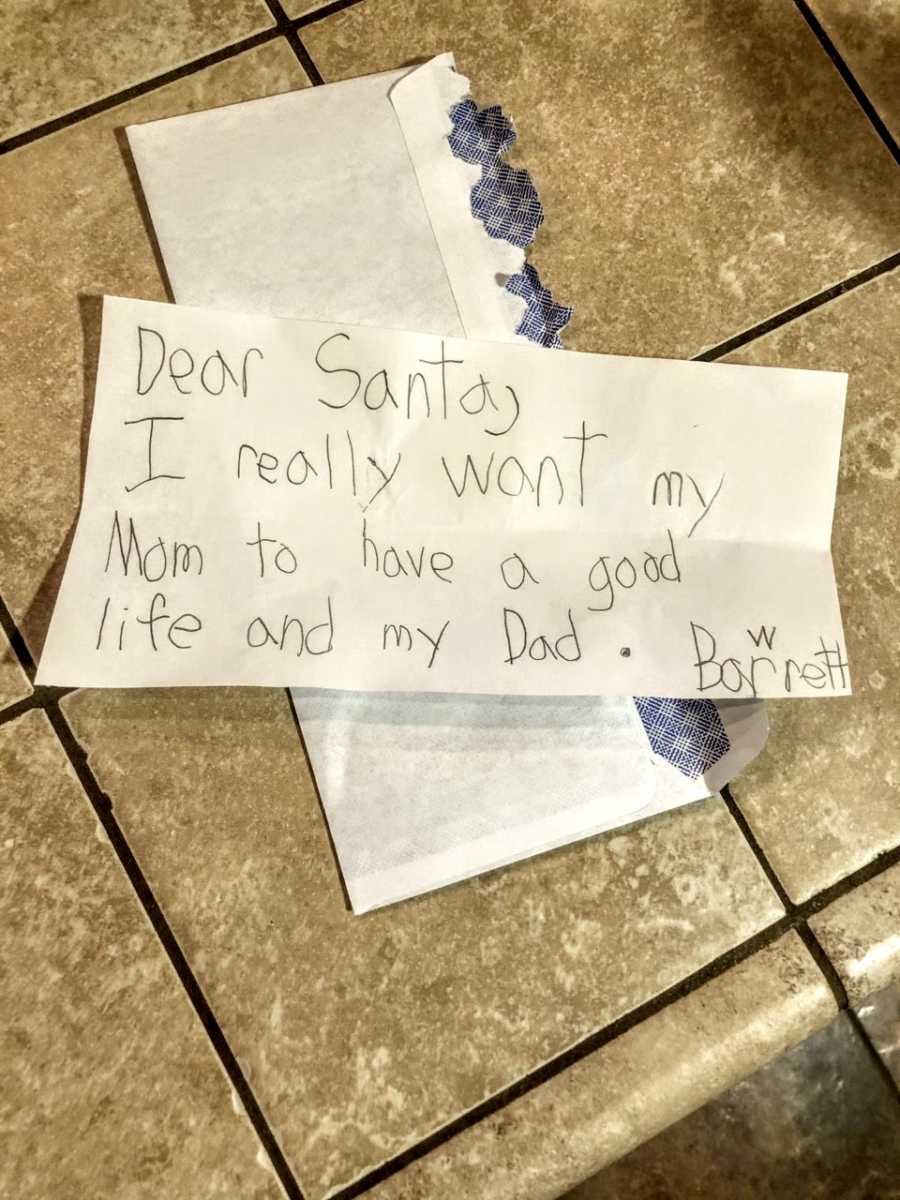 Dear Santa,
I really want my
Mom to have a good
life and my Dad. Barrett W